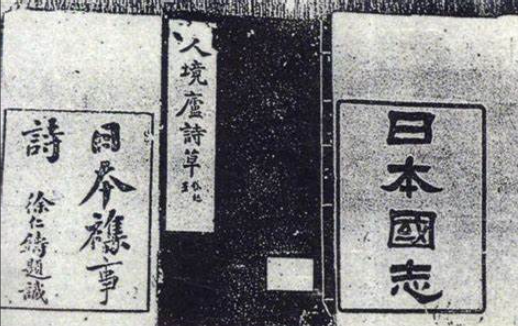 日本國志
人境廬詩草
日本襍事
詩
徐仁鑄題識